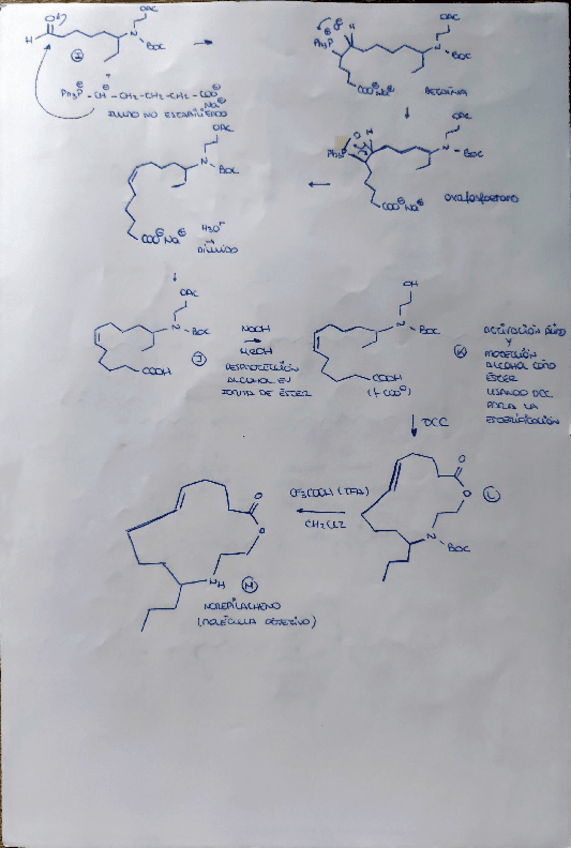 OAC
O
H
N
BOC
I
+
Ph₃P⊕-CH⊖-CH₂-CH₂-CH₂-COO⊖ Na⊕
ILURO NO ESTABILIZADO
→
OAC
O⊖ H
Ph₃P⊕
N
BOC
COO⊖Na⊕
BETAÍNA
↓
OAC
O H
Ph₃P
N
BOC
COO⊖Na⊕
oxafosfetano
←
OAC
N
BOC
COO⊖Na⊕
H₃O⁺
DILUIDO
↓
OAC
N
BOC
COOH
J
NaOH
MeOH
DESPROTECCIÓN
ALCOHOL EN
FORMA DE ÉSTER
OH
N
BOC
COOH
(+ COO⊖)
K
ACTIVACIÓN ÁCIDO
Y
PROTECCIÓN
ALCOHOL COMO
ÉSTER
USANDO DCC
PARA LA
ESTERIFICACIÓN
↓ DCC
O
O
N
BOC
L
CF₃COOH (TFA)
CH₂Cl₂
O
O
NH
M
NOREPILACHENO
(MOLÉCULA OBJETIVO)